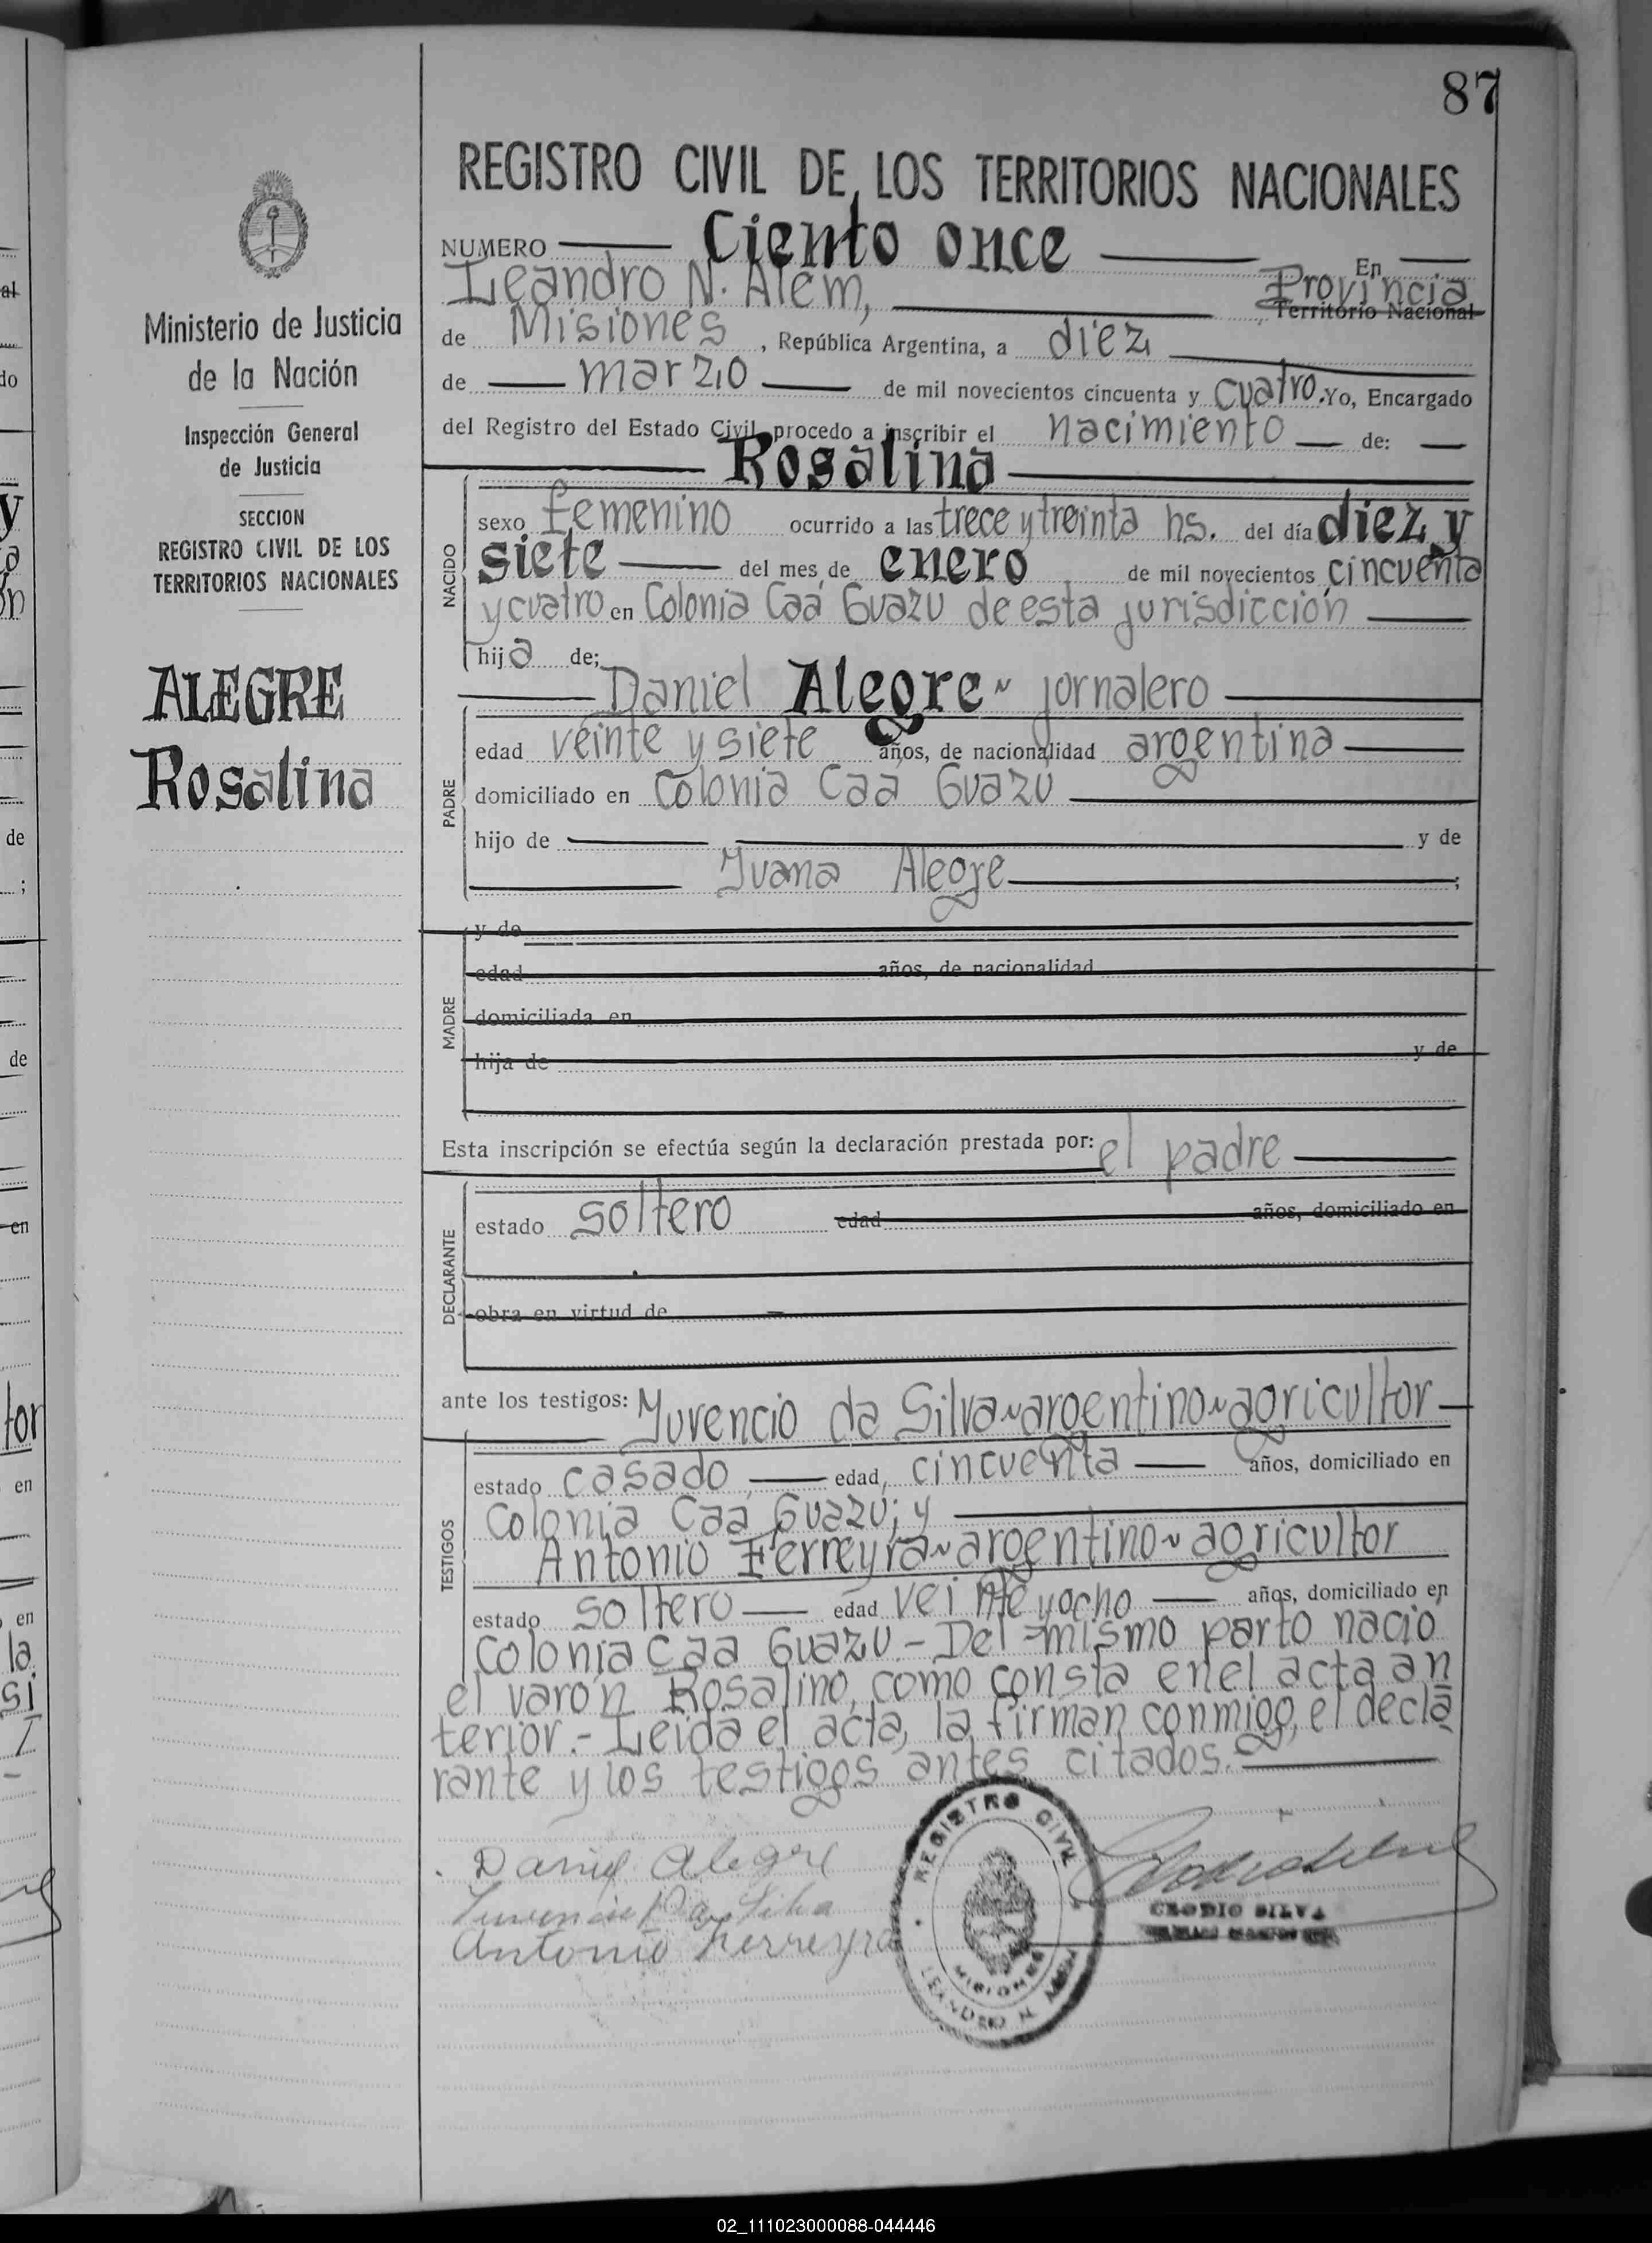 87
REGISTRO CIVIL DE LOS TERRITORIOS NACIONALES
NUMERO Ciento once En
Leandro N. Alem, Provincia
Territorio Nacional
de Misiones, República Argentina, a diez
de marzo de mil novecientos cincuenta y cuatro. Yo, Encargado
del Registro del Estado Civil, procedo a inscribir el nacimiento de:
Rosalina
NACIDO
sexo femenino ocurrido a las trece y treinta hs. del día diez y
siete del mes de enero de mil novecientos cincuenta
y cuatro en Colonia Caá Guazu de esta jurisdicción
hija de;
Daniel Alegre ~ jornalero
PADRE
edad veinte y siete años, de nacionalidad argentina
domiciliado en Colonia Caa Guazu
hijo de y de
Juana Alegre ;
MADRE
y de
edad años, de nacionalidad
domiciliada en
hija de y de
Esta inscripción se efectúa según la declaración prestada por: el padre
DECLARANTE
estado soltero edad años, domiciliado en
obra en virtud de
ante los testigos: Juvencio da Silva ~ argentino ~ agricultor
TESTIGOS
estado casado edad, cincuenta años, domiciliado en
Colonia Caá Guazú; y
Antonio Ferreyra ~ argentino ~ agricultor
estado soltero edad veinte y ocho años, domiciliado en
Colonia Caa Guazu.- Del mismo parto nació
el varón Rosalino, como consta en el acta an
terior.- Leida el acta, la firman conmigo, el decla
rante y los testigos antes citados.-
Daniel Alegre
Juvencio Da Silva
Antonio Ferreyra
REGISTRO CIVIL
MISIONES
LEANDRO N. ALEM
CLODIO SILVA
Ministerio de Justicia
de la Nación
Inspección General
de Justicia
SECCION
REGISTRO CIVIL DE LOS
TERRITORIOS NACIONALES
ALEGRE
Rosalina
02_111023000088-044446